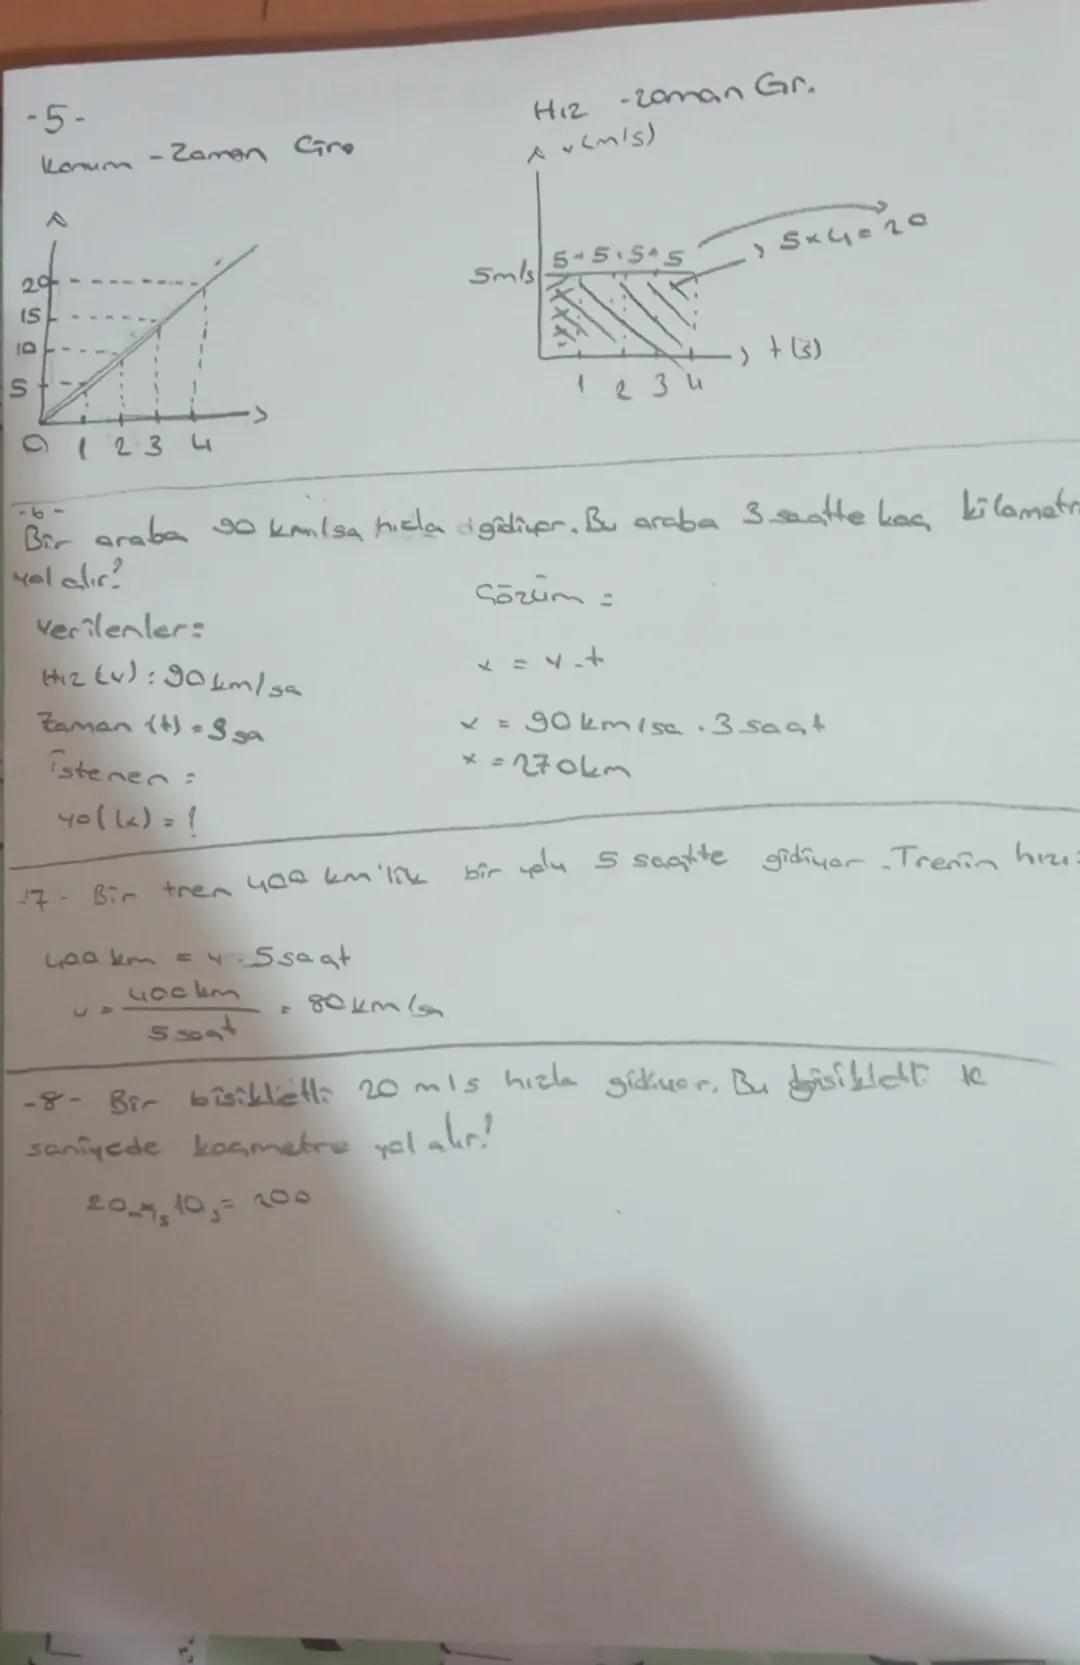 -5-
Konum - Zaman Gra
20
15
10
5
0 1 2 3 4
Hız - zaman Gr.
v (m/s)
5m/s
5+5+5+5
5x4=20
t (s)
1 2 3 4
-6-
Bir araba 90 km/sa hızla gidiyor. Bu araba 3 saatte kaç kilometre
yol alır?
Verilenler=
Hız (v) : 90 km/sa
Zaman (t) = 3 sa
istenen =
yol (x) = ?
Çözüm =
x = v.t
x = 90 km/sa . 3 saat
x = 270km
-7- Bir tren 400 km'lik bir yolu 5 saatte gidiyor. Trenin hızı
400 km = v . 5 saat
v = 400km / 5 saat = 80 km/sa
-8- Bir bisikletli 20 m/s hızla gidiyor. Bu bisikletli 10
saniyede kaçmetre yol alır?
20 m/s 10 s = 200